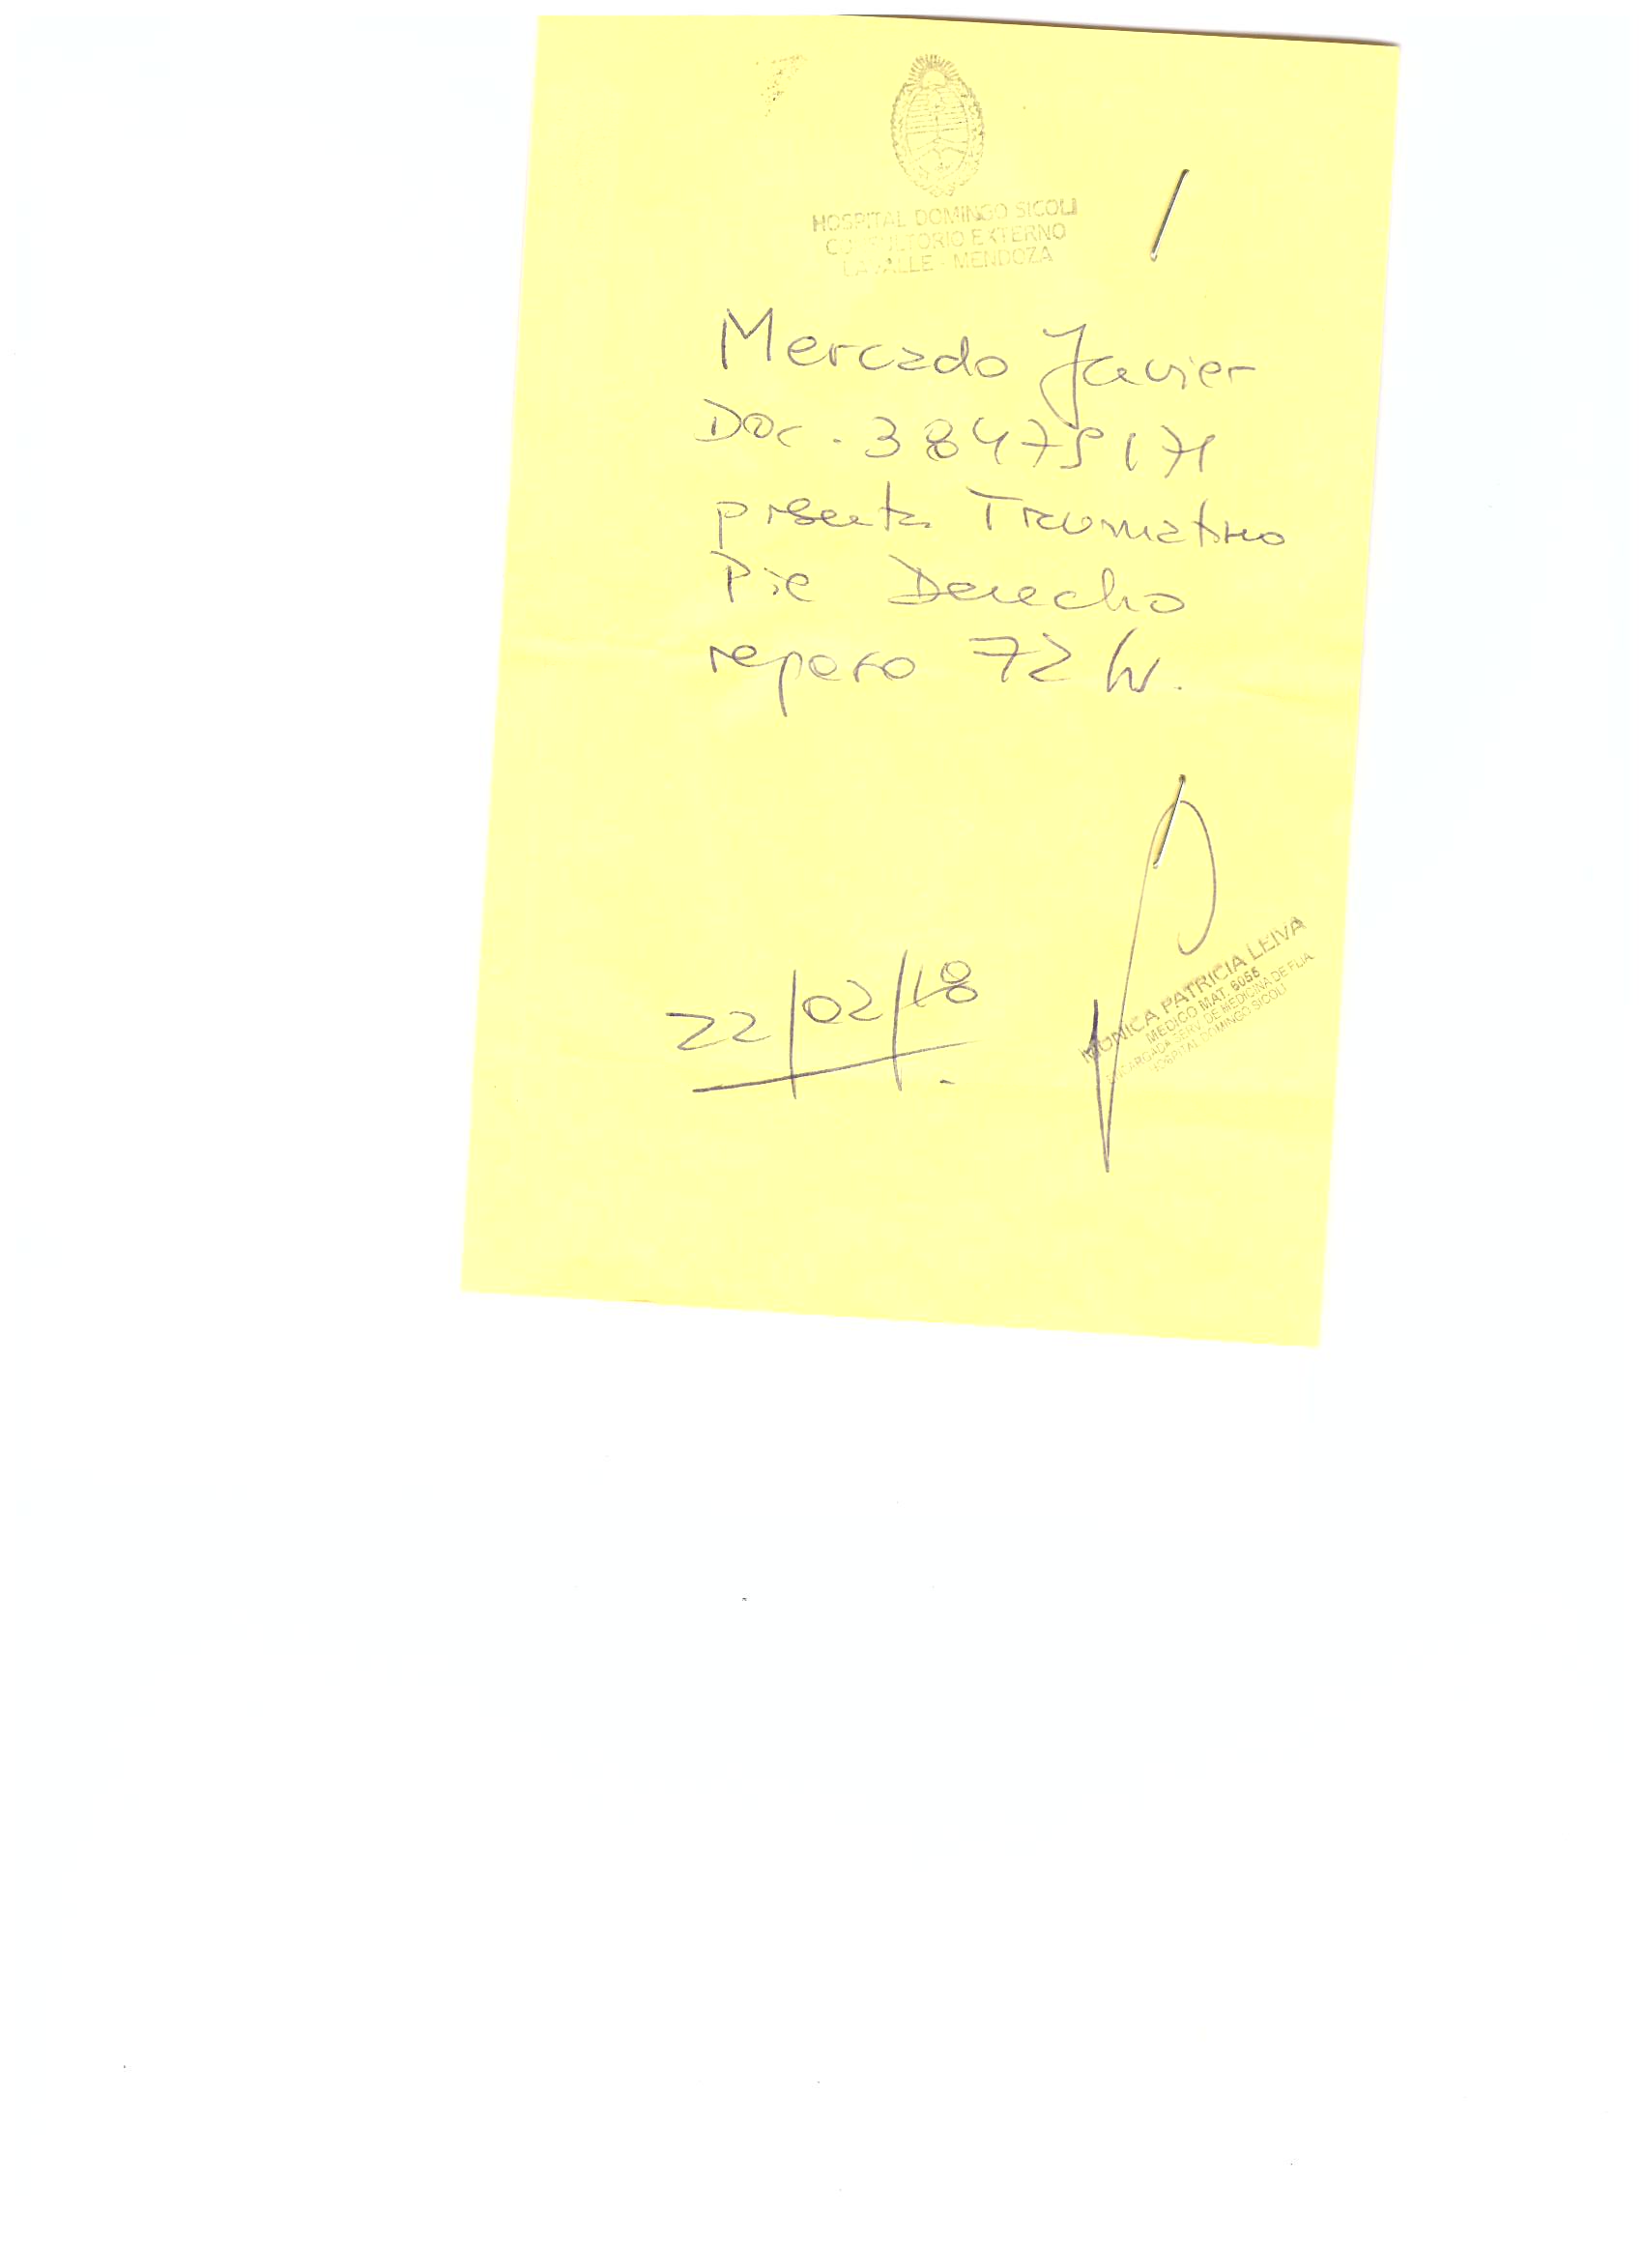 HOSPITAL DOMINGO SICOLI
CONSULTORIO EXTERNO
LAVALLE - MENDOZA
Mercado Javier
Doc. 38475171
presenta Traumatismo
Pie Derecho
reposo 72 hs.
22/02/18
MONICA PATRICIA LEIVA
MEDICO MAT. 5055
ENCARGADA SERV. DE MEDICINA DE FLIA
HOSPITAL DOMINGO SICOLI